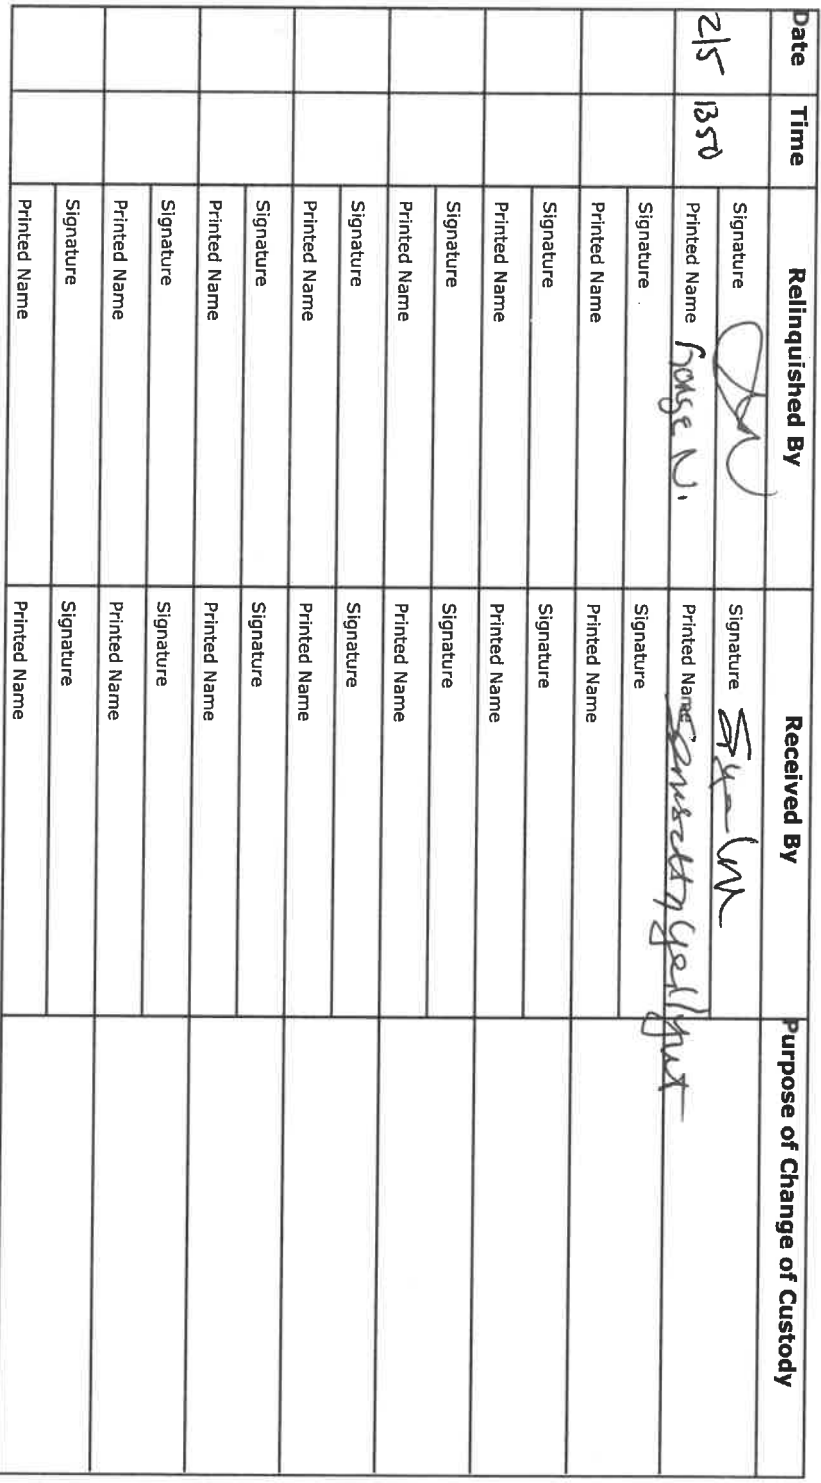 Date Time Relinquished By Received By Purpose of Change of Custody
2/5 1350 Signature Signature
Printed Name George N. Printed Name
Signature Signature
Printed Name Printed Name
Signature Signature
Printed Name Printed Name
Signature Signature
Printed Name Printed Name
Signature Signature
Printed Name Printed Name
Signature Signature
Printed Name Printed Name
Signature Signature
Printed Name Printed Name
Signature Signature
Printed Name Printed Name